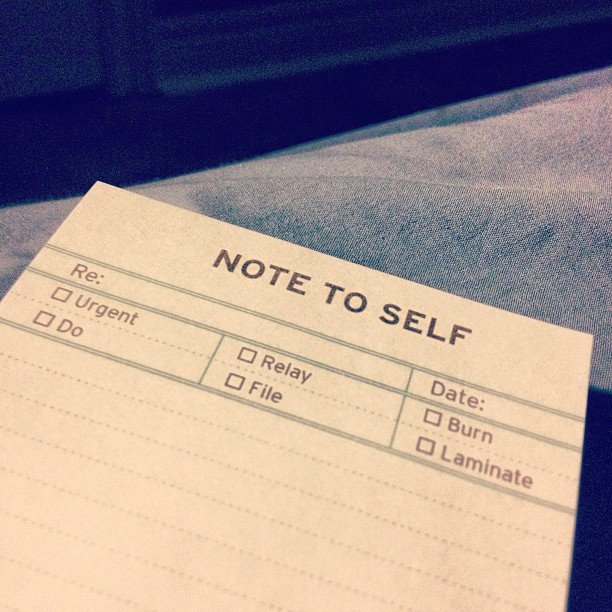 NOTE TO SELF
Re: Date:
Urgent Relay Burn
Do File Laminate